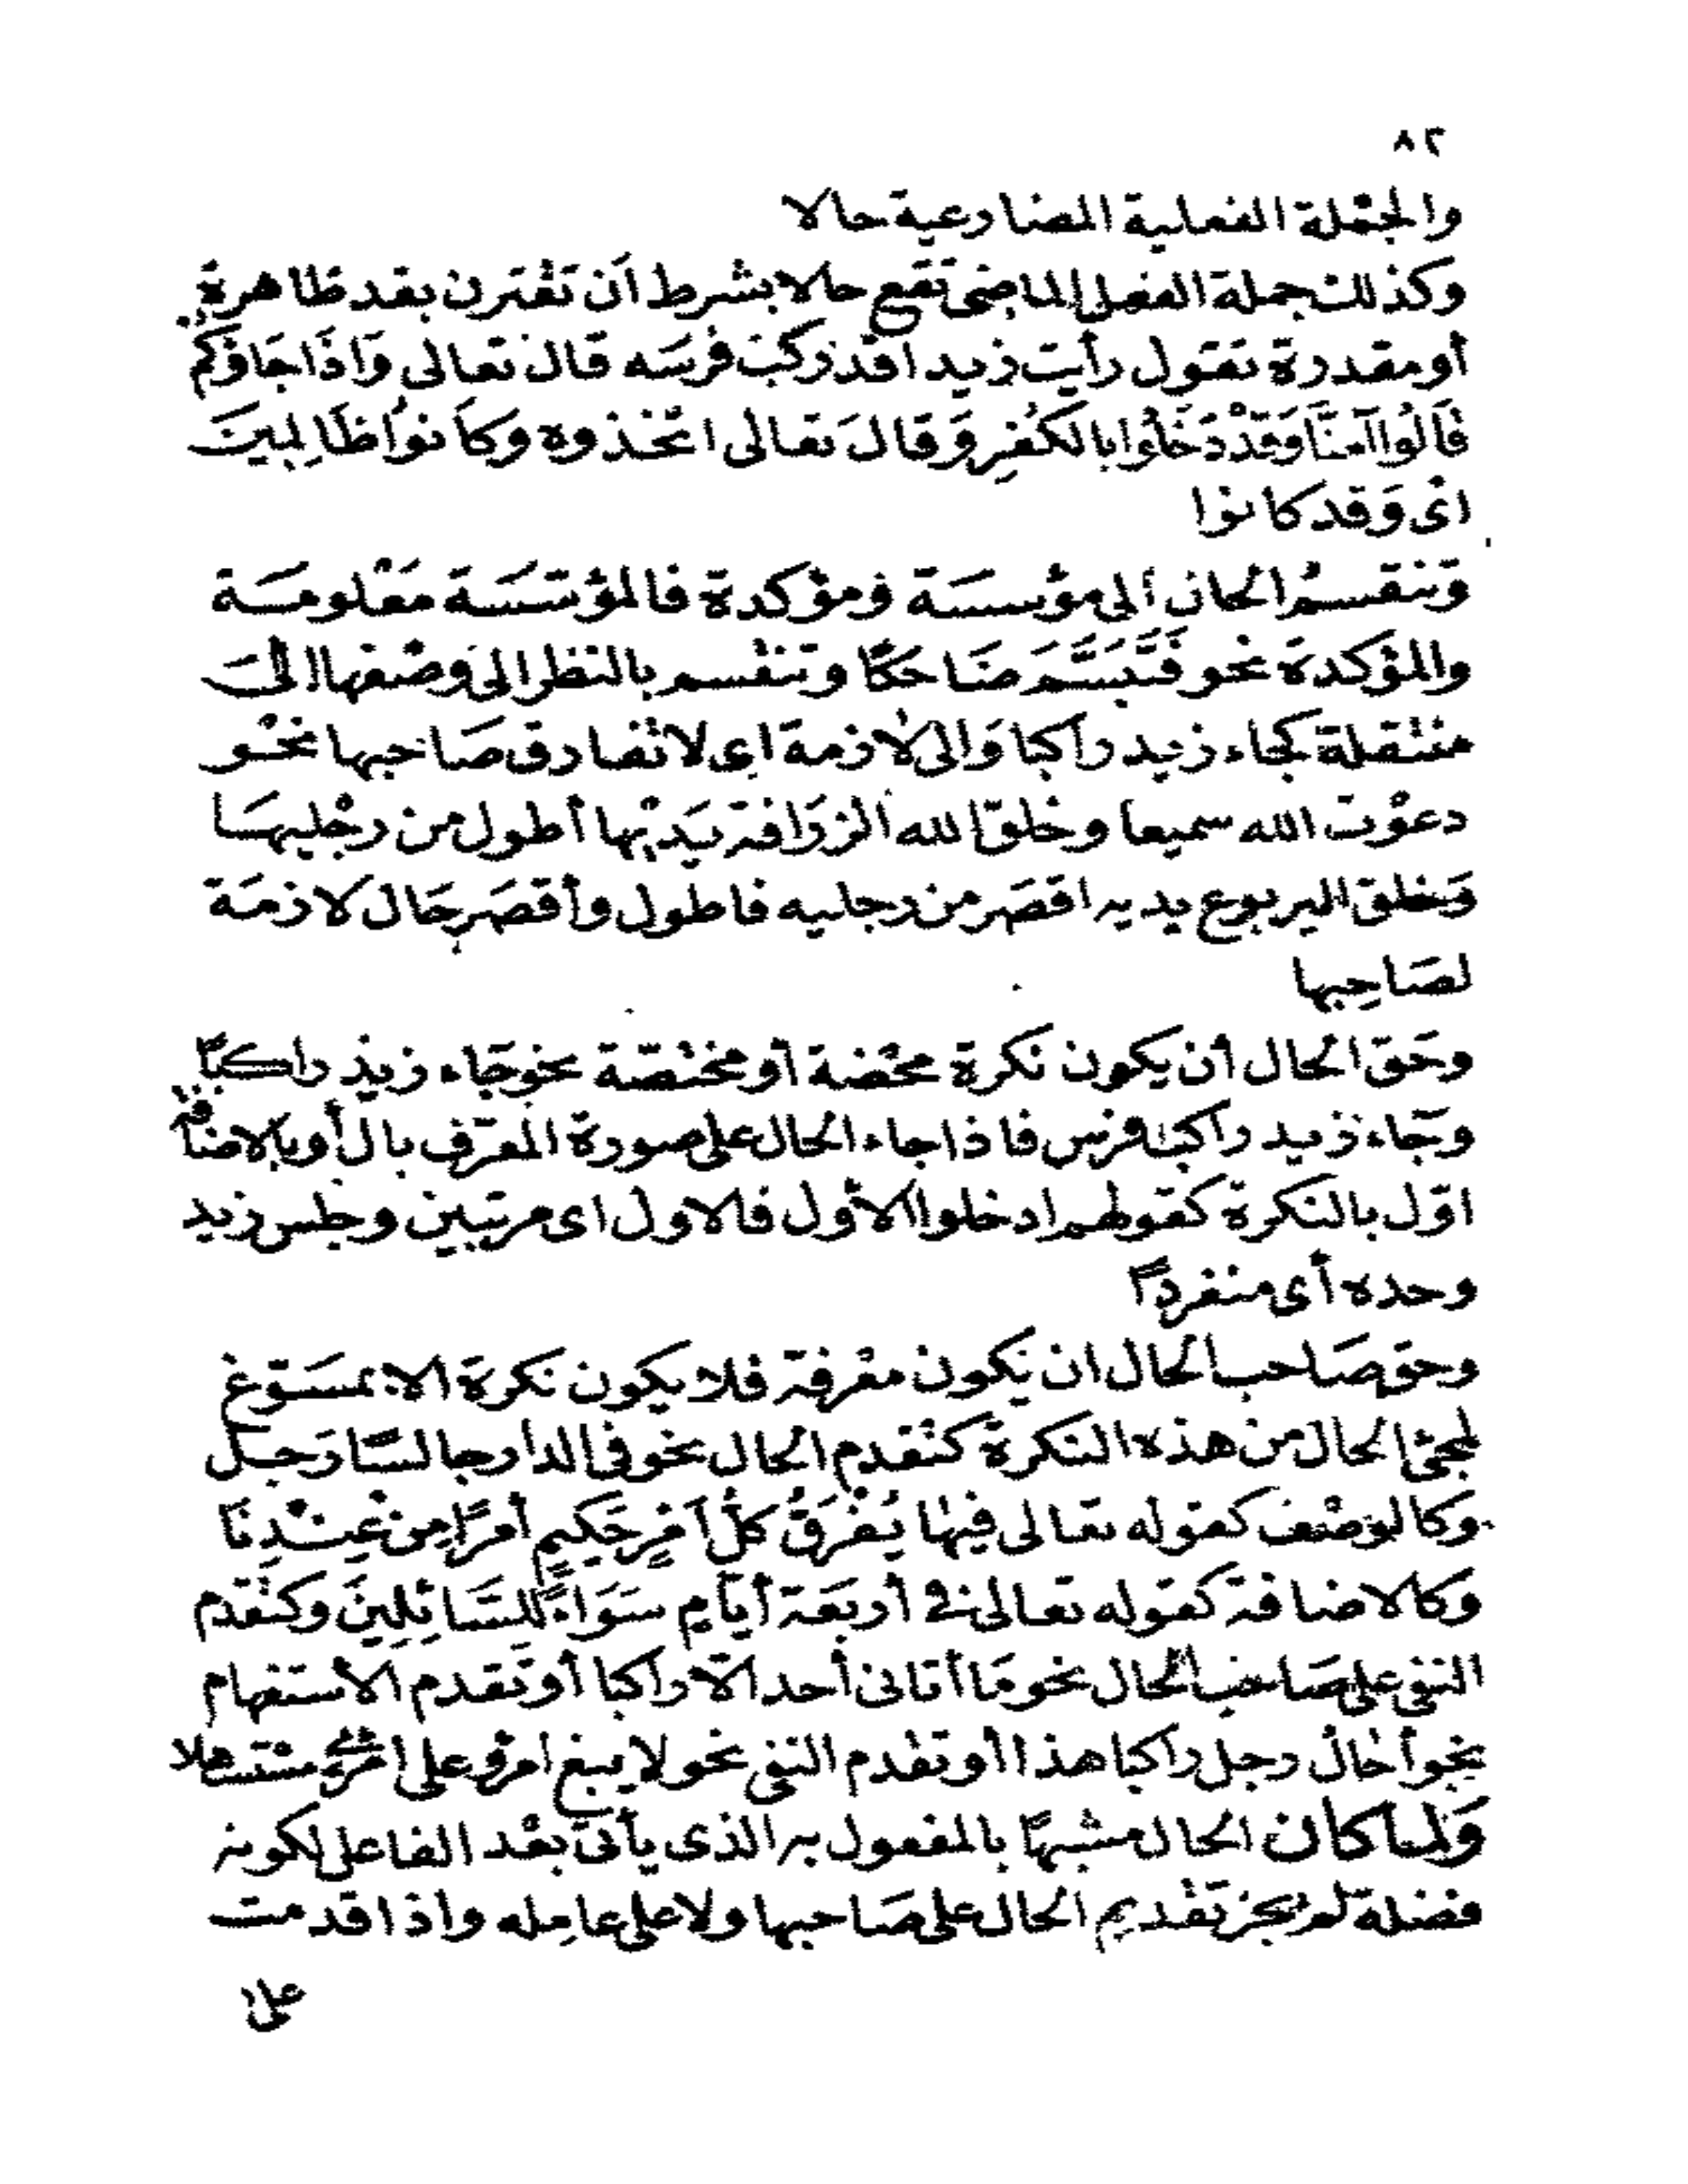 ٨٢
والجملة الفعلية المضارعية حالا
وكذلك جملة الفعل الماضى تقع حالا بشرط أن تقترن بقد ظاهرة
أو مقدرة تقول رأيت زيدا قد ركب فرسه قال تعالى وَاذَا جَاؤكم
قَالُوا آمنَّا وَقَدْ دَخَلُوا بالكُفرِ وَقالَ تعالى اتخذوه وكانوُا ظَالِمينَ
اى وَقد كانوا
وتنقسمُ الحال الى مؤسسَة ومؤكدة فالمؤسَسَة مَعْلومَة
والمؤكدَة نحو فَتَبَسَّمَ ضَاحكًا وتنقسم بالنظر الى وصفها الىَ
منتقلة كجاء زيد راكبا وَالى لازمة اى لا تفارق صَاحبها نحْو
دعوْت الله سميعا وخلق الله الزرَافة يَدَيْها أطول من رجْليهَا
وَخلق اليربوع يديه اقصَر من رجليه فاطول وأقصَر حَال لازمَة
لصَاحِبها
وحَق الحال أن يكون نكرة محْضة أو مختصّة نحو جَاء زيد راكبًا
وجَاء زيد راكب فرس فاذا جاء الحال على صورة المعرّف بال أو بالاضافة
اوّل بالنكرة كقولهم ادخلوا الأول فالاول اى مرتبين وجلس زيد
وحده أى منفردًا
وحق صَاحب الحال ان يكون معْرفة فلا يكون نكرة الا بمسَوّغ
لمجئ الحال من هذه النكرة كتقدم الحال نحو فى الدار جالسًا رَجل
وكالوصْف كقوله تعالى فيهَا يُفْرَقُ كلُّ أمْرٍ حَكيمٍ أمْرًا مِنْ عِنْدِنَا
وكالاضافة كقوله تعالى فى أربَعَة أيَّامٍ سَوَاءً للسَّائِلِينَ وكتقدم
النفى على صَاحب الحال نحو مَا أتانى أحد الاّ راكبا أو تقدم الاستفهام
نحو أخال رجل راكبا هذا أو تقدم النفى نحو لا يبغ امرؤ على امرئ مستسهلا
وَلما كان الحال مشبهًا بالمفعول به الذى يأتى بعْد الفاعل لكونه
فضلة لم يجز تقديم الحال على صَاحبها ولا على عامِله واذا قدمت
على